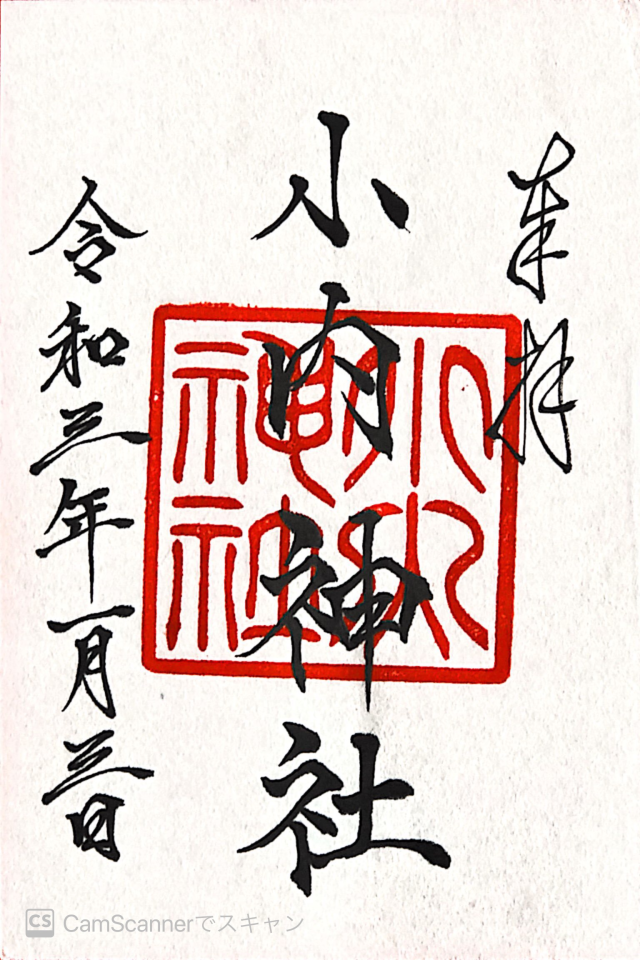 奉拝
小内神社
令和三年一月三日
小内神社
CS CamScannerでスキャン